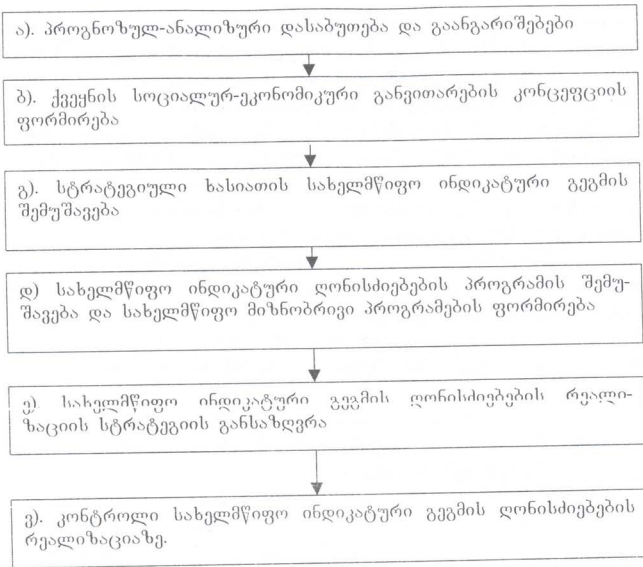 ა). პროგნოზულ-ანალიზური დასაბუთება და გაანგარიშებები
ბ). ქვეყნის სოციალურ-ეკონომიკური განვითარების კონცეფციის
ფორმირება
გ). სტრატეგიული ხასიათის სახელმწიფო ინდიკატური გეგმის
შემუშავება
დ) სახელმწიფო ინდიკატური ღონისძიებების პროგრამის შემუ-
შავება და სახელმწიფო მიზნობრივი პროგრამების ფორმირება
ე) სახელმწიფო ინდიკატური გეგმის ღონისძიებების რეალი-
ზაციის სტრატეგიის განსაზღვრა
ვ). კონტროლი სახელმწიფო ინდიკატური გეგმის ღონისძიებების
რეალიზაციაზე.